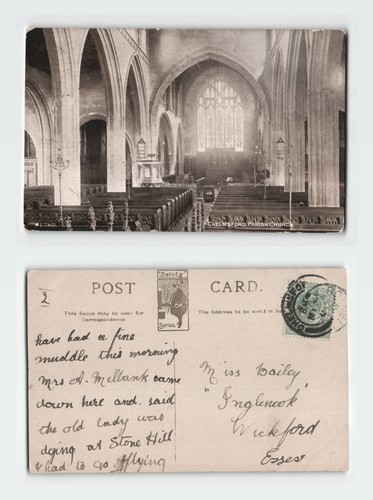 CHELMSFORD PARISH CHURCH
2
POST CARD.
This Space may be used for
Correspondence.
The Address to be writt'n h
"Dainty"
Series.
have had a fine
muddle this morning
Mrs A. Milbank came
down here and said
the old lady was
dying at Stone Hill
I had to go flying
Miss Bailey
"Inglenook"
Wickford
Essex